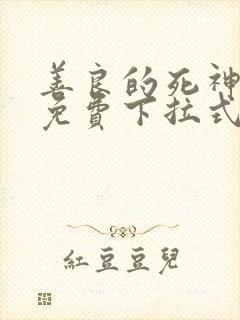 善良的死神
免費下拉式
紅豆豆兒